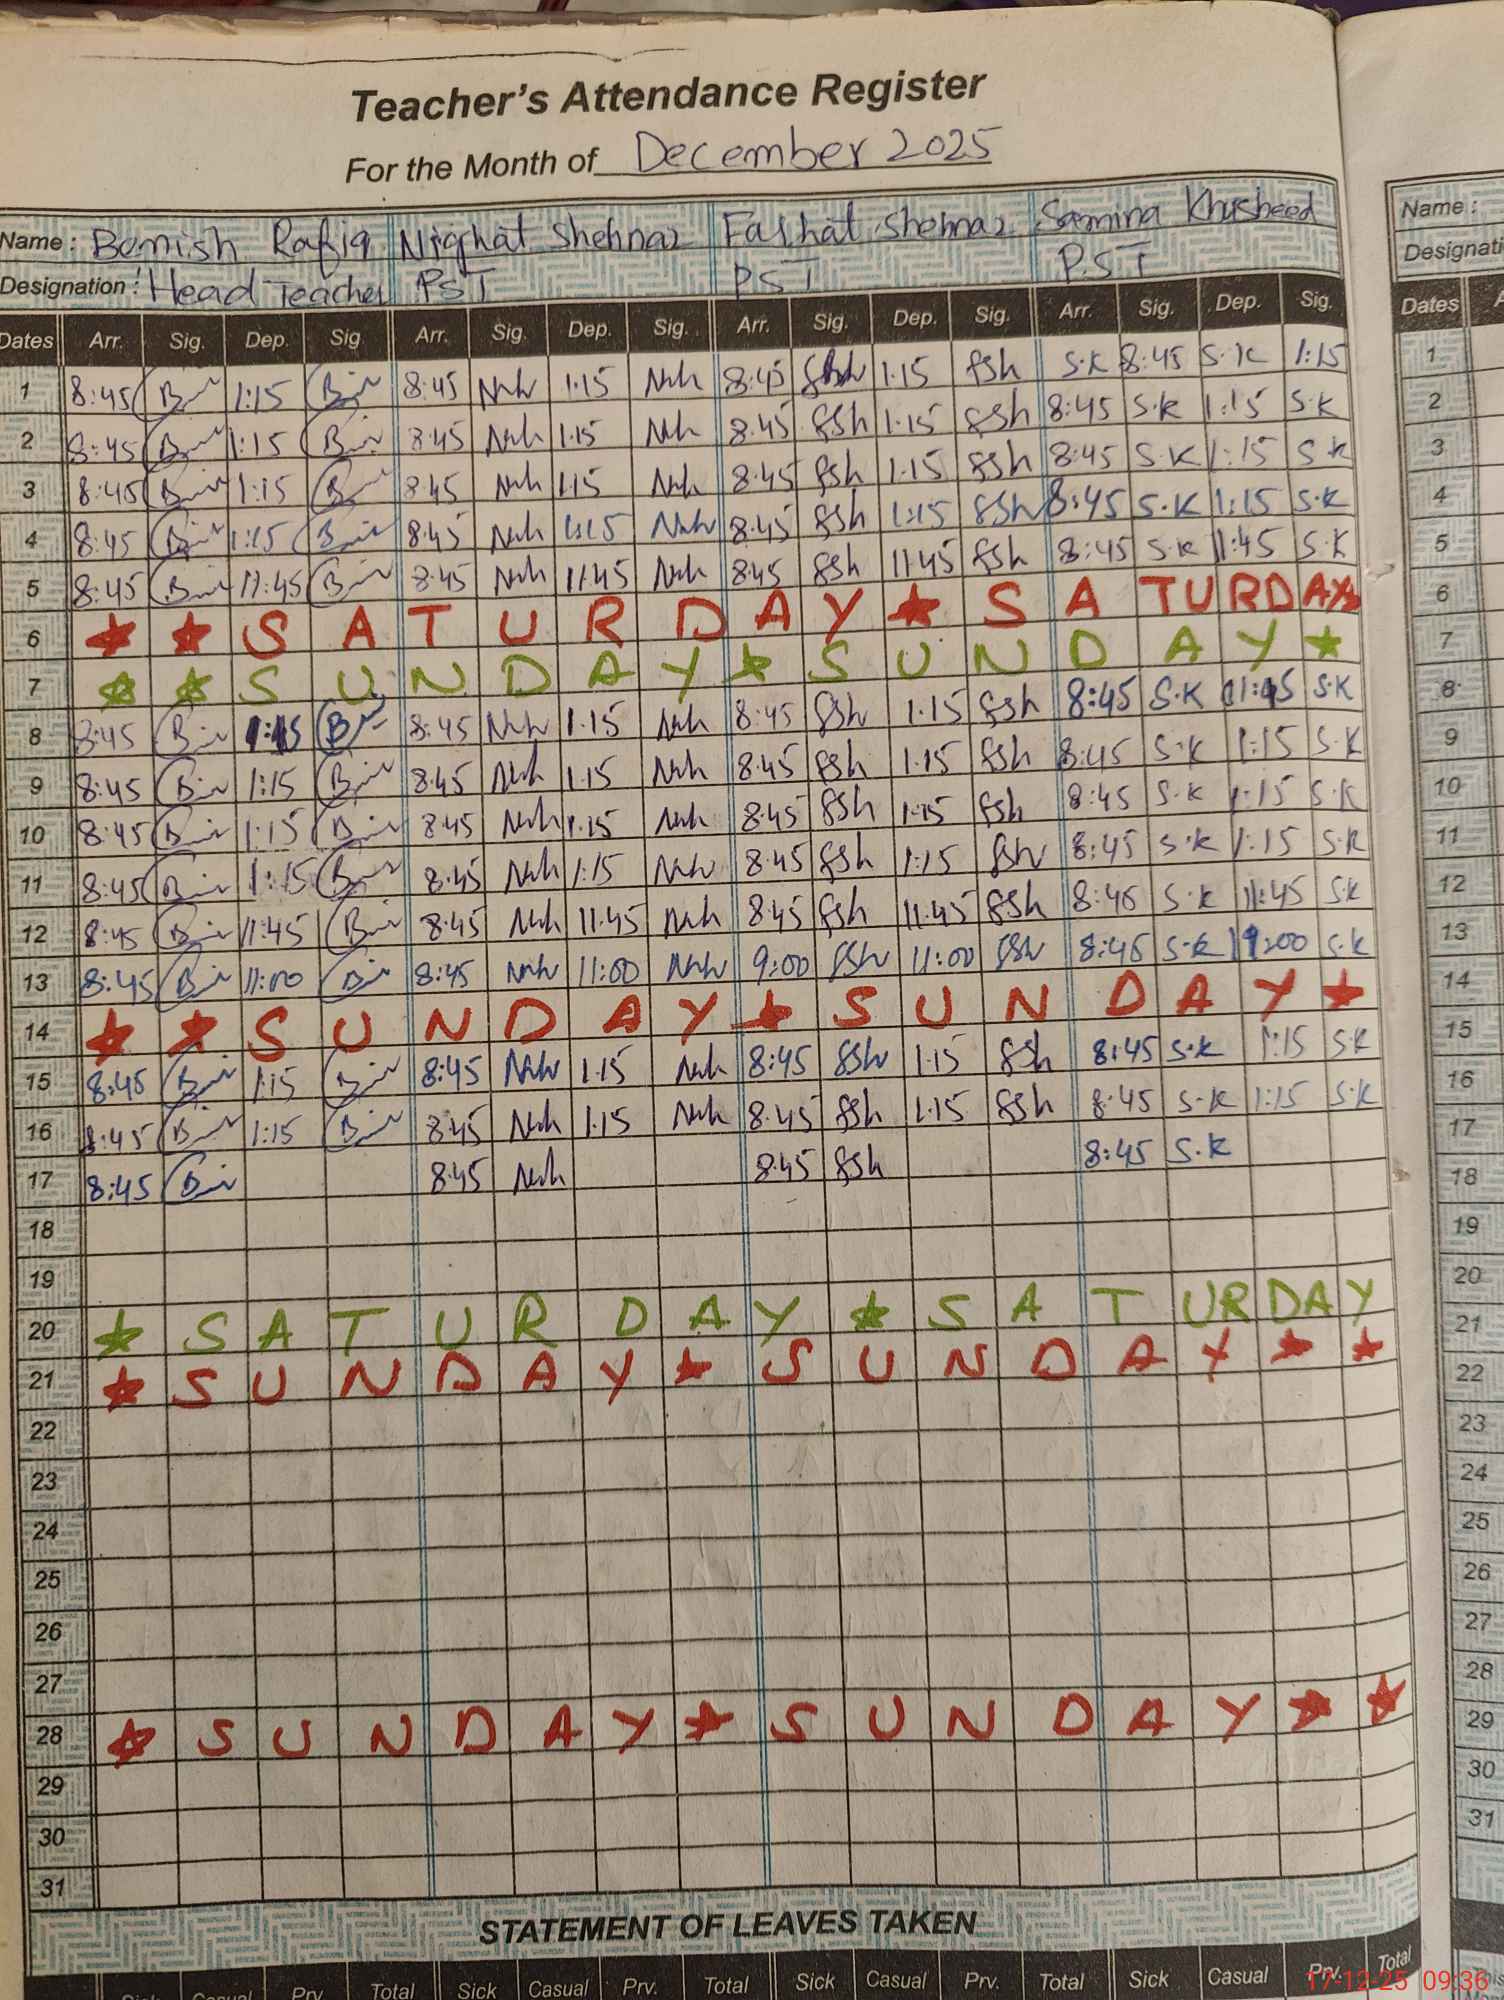 Teacher's Attendance Register
For the Month of December 2025
Name : Bomish Rafiq Nighat Shehnaz Farhat Shehnaz Samina Khursheed
Designation : Head Teacher PST PST P.S.T
Dates Arr. Sig. Dep. Sig Arr. Sig. Dep. Sig. Arr. Sig. Dep. Sig. Arr. Sig. Dep. Sig.
1 8:45 1:15 8:45 1:15 8:45 1:15 fsh S.K 8:45 S.K 1:15
2 8:45 1:15 8:45 1:15 8:45 fsh 1:15 fsh 8:45 S.K 1:15 S.K
3 8:45 1:15 8:45 1:15 8:45 fsh 1:15 fsh 8:45 S.K 1:15 S.K
4 8:45 1:15 8:45 1:15 8:45 fsh 1:15 fsh 8:45 S.K 1:15 S.K
5 8:45 11:45 8:45 11:45 8:45 fsh 11:45 fsh 8:45 S.K 11:45 S.K
6 SATURDAY SATURDAY
7 SUNDAY SUNDAY
8 8:45 1:15 8:45 1:15 8:45 fsh 1:15 fsh 8:45 S.K S.K
9 8:45 1:15 8:45 1:15 8:45 fsh 1:15 fsh 8:45 S.K 1:15 S.K
10 8:45 1:15 8:45 1:15 8:45 fsh 1:15 fsh 8:45 S.K 1:15 S.K
11 8:45 1:15 8:45 1:15 8:45 fsh 1:15 fsh 8:45 S.K 1:15 S.K
12 8:45 11:45 8:45 11:45 8:45 fsh 11:45 fsh 8:45 S.K 11:45 S.K
13 8:45 11:00 8:45 11:00 9:00 fsh 11:00 fsh 8:45 S.K S.K
14 SUNDAY SUNDAY
15 8:45 1:15 8:45 1:15 8:45 fsh 1:15 fsh 8:45 S.K 1:15 S.K
16 8:45 1:15 8:45 1:15 8:45 fsh 1:15 fsh 8:45 S.K 1:15 S.K
17 8:45 8:45 8:45 fsh 8:45 S.K
18
19
20 SATURDAY SATURDAY
21 SUNDAY SUNDAY
22
23
24
25
26
27
28 SUNDAY SUNDAY
29
30
31
STATEMENT OF LEAVES TAKEN
Sick Casual Prv. Total Sick Casual Prv. Total Sick Casual Prv. Total Sick Casual Prv. Total
Name :
Dates
1
2
3
4
5
6
7
8
9
10
11
12
13
14
15
16
17
18
19
20
21
22
23
24
25
26
27
28
29
30
31
17-12-25 09:36